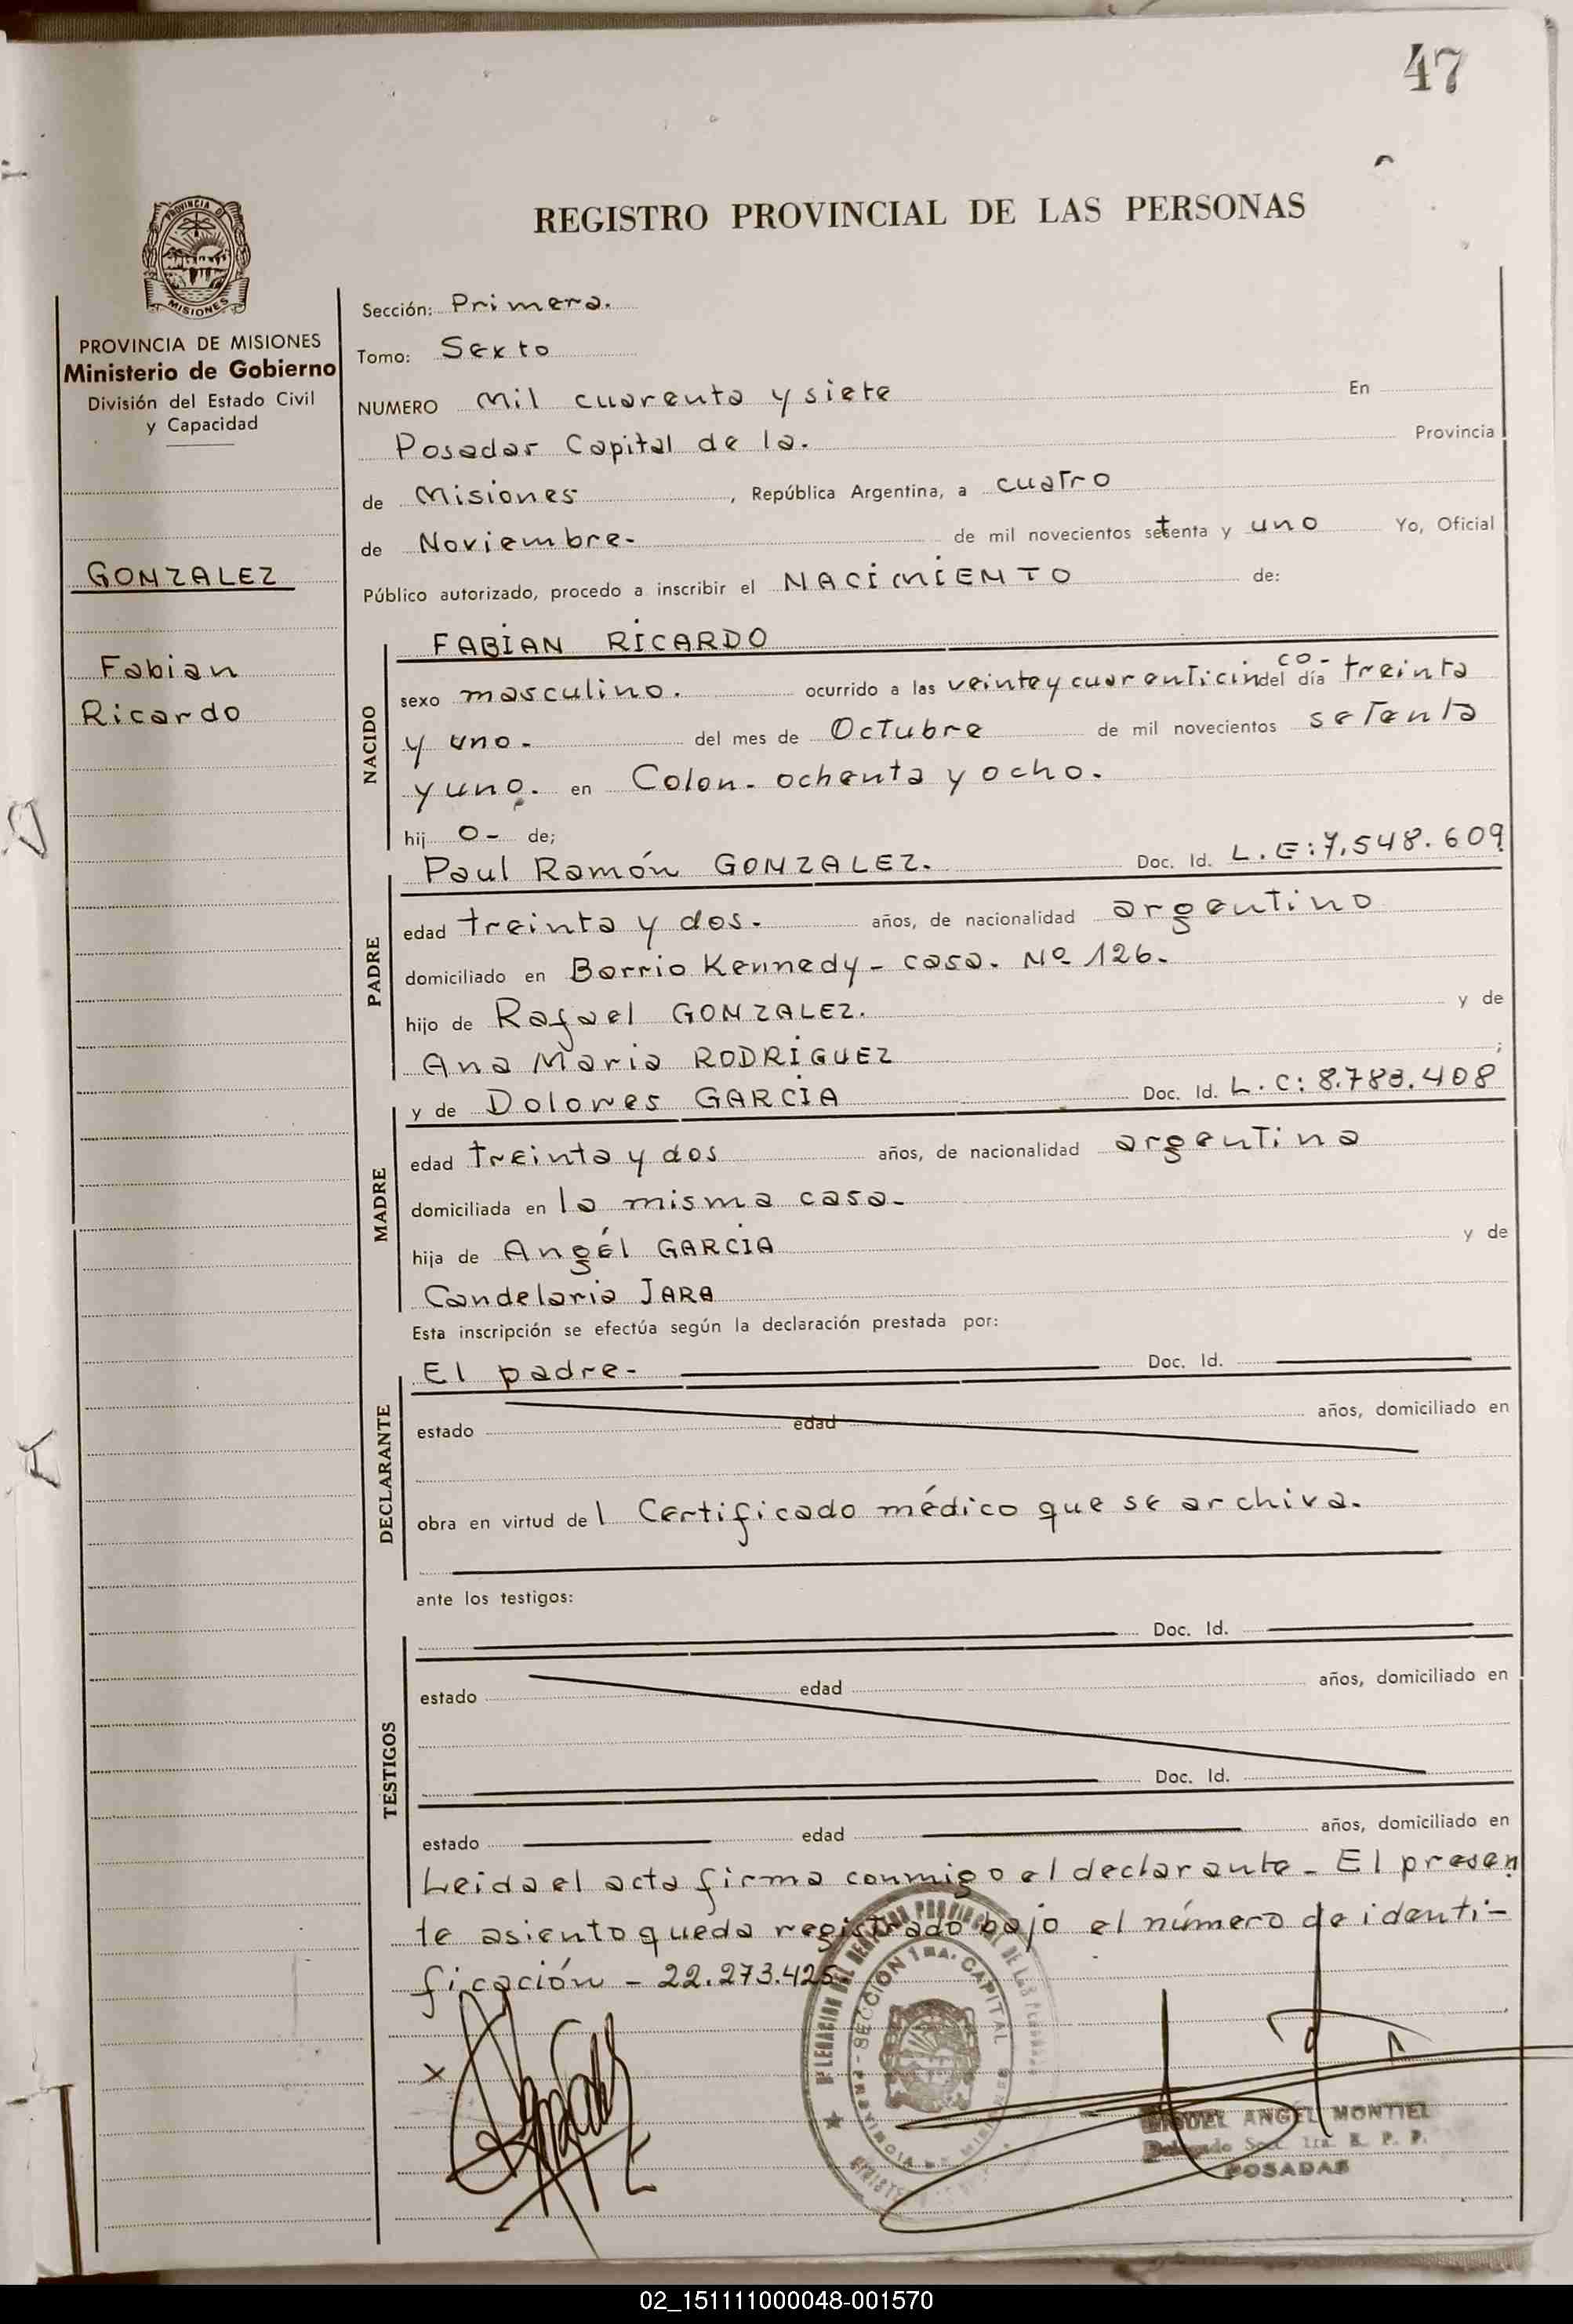 47
PROVINCIA DE
MISIONES
REGISTRO PROVINCIAL DE LAS PERSONAS
PROVINCIA DE MISIONES
Ministerio de Gobierno
División del Estado Civil
y Capacidad
GONZALEZ
Fabian
Ricardo
Sección: Primera.
Tomo: Sexto
NUMERO Mil cuarenta y siete En
Posadas Capital de la. Provincia
de Misiones, República Argentina, a cuatro
de Noviembre- de mil novecientos setenta y uno Yo, Oficial
Público autorizado, procedo a inscribir el NACIMIENTO de:
NACIDO
FABIAN RICARDO
sexo masculino. ocurrido a las veinte y cuarenticinco- del día treinta
y uno. del mes de Octubre de mil novecientos setenta
y uno. en Colon. ochenta y ocho.
hij o- de;
PADRE
Paul Ramón GONZALEZ. Doc. Id. L.E: 7.548.609
edad treinta y dos. años, de nacionalidad argentino
domiciliado en Barrio Kennedy- casa. Nº 126.
hijo de Rafael GONZALEZ. y de
Ana Maria RODRIGUEZ ;
MADRE
y de Dolores GARCIA Doc. Id. L.C: 8.783.408
edad treinta y dos años, de nacionalidad argentina
domiciliada en la misma casa-
hija de Angél GARCIA y de
Candelaria JARA
Esta inscripción se efectúa según la declaración prestada por:
DECLARANTE
El padre- Doc. Id.
estado edad años, domiciliado en
obra en virtud del Certificado médico que se archiva.
ante los testigos:
TESTIGOS
Doc. Id.
estado edad años, domiciliado en
Doc. Id.
estado edad años, domiciliado en
Leida el acta firma conmigo el declarante- El presen
te asiento queda registrado bajo el número de identi-
ficación - 22.273.425
SECCION 1ra. CAPITAL
MIGUEL ANGEL MONTIEL
Delegado Secc. 1ra. R. P. P.
POSADAS
02_151111000048-001570